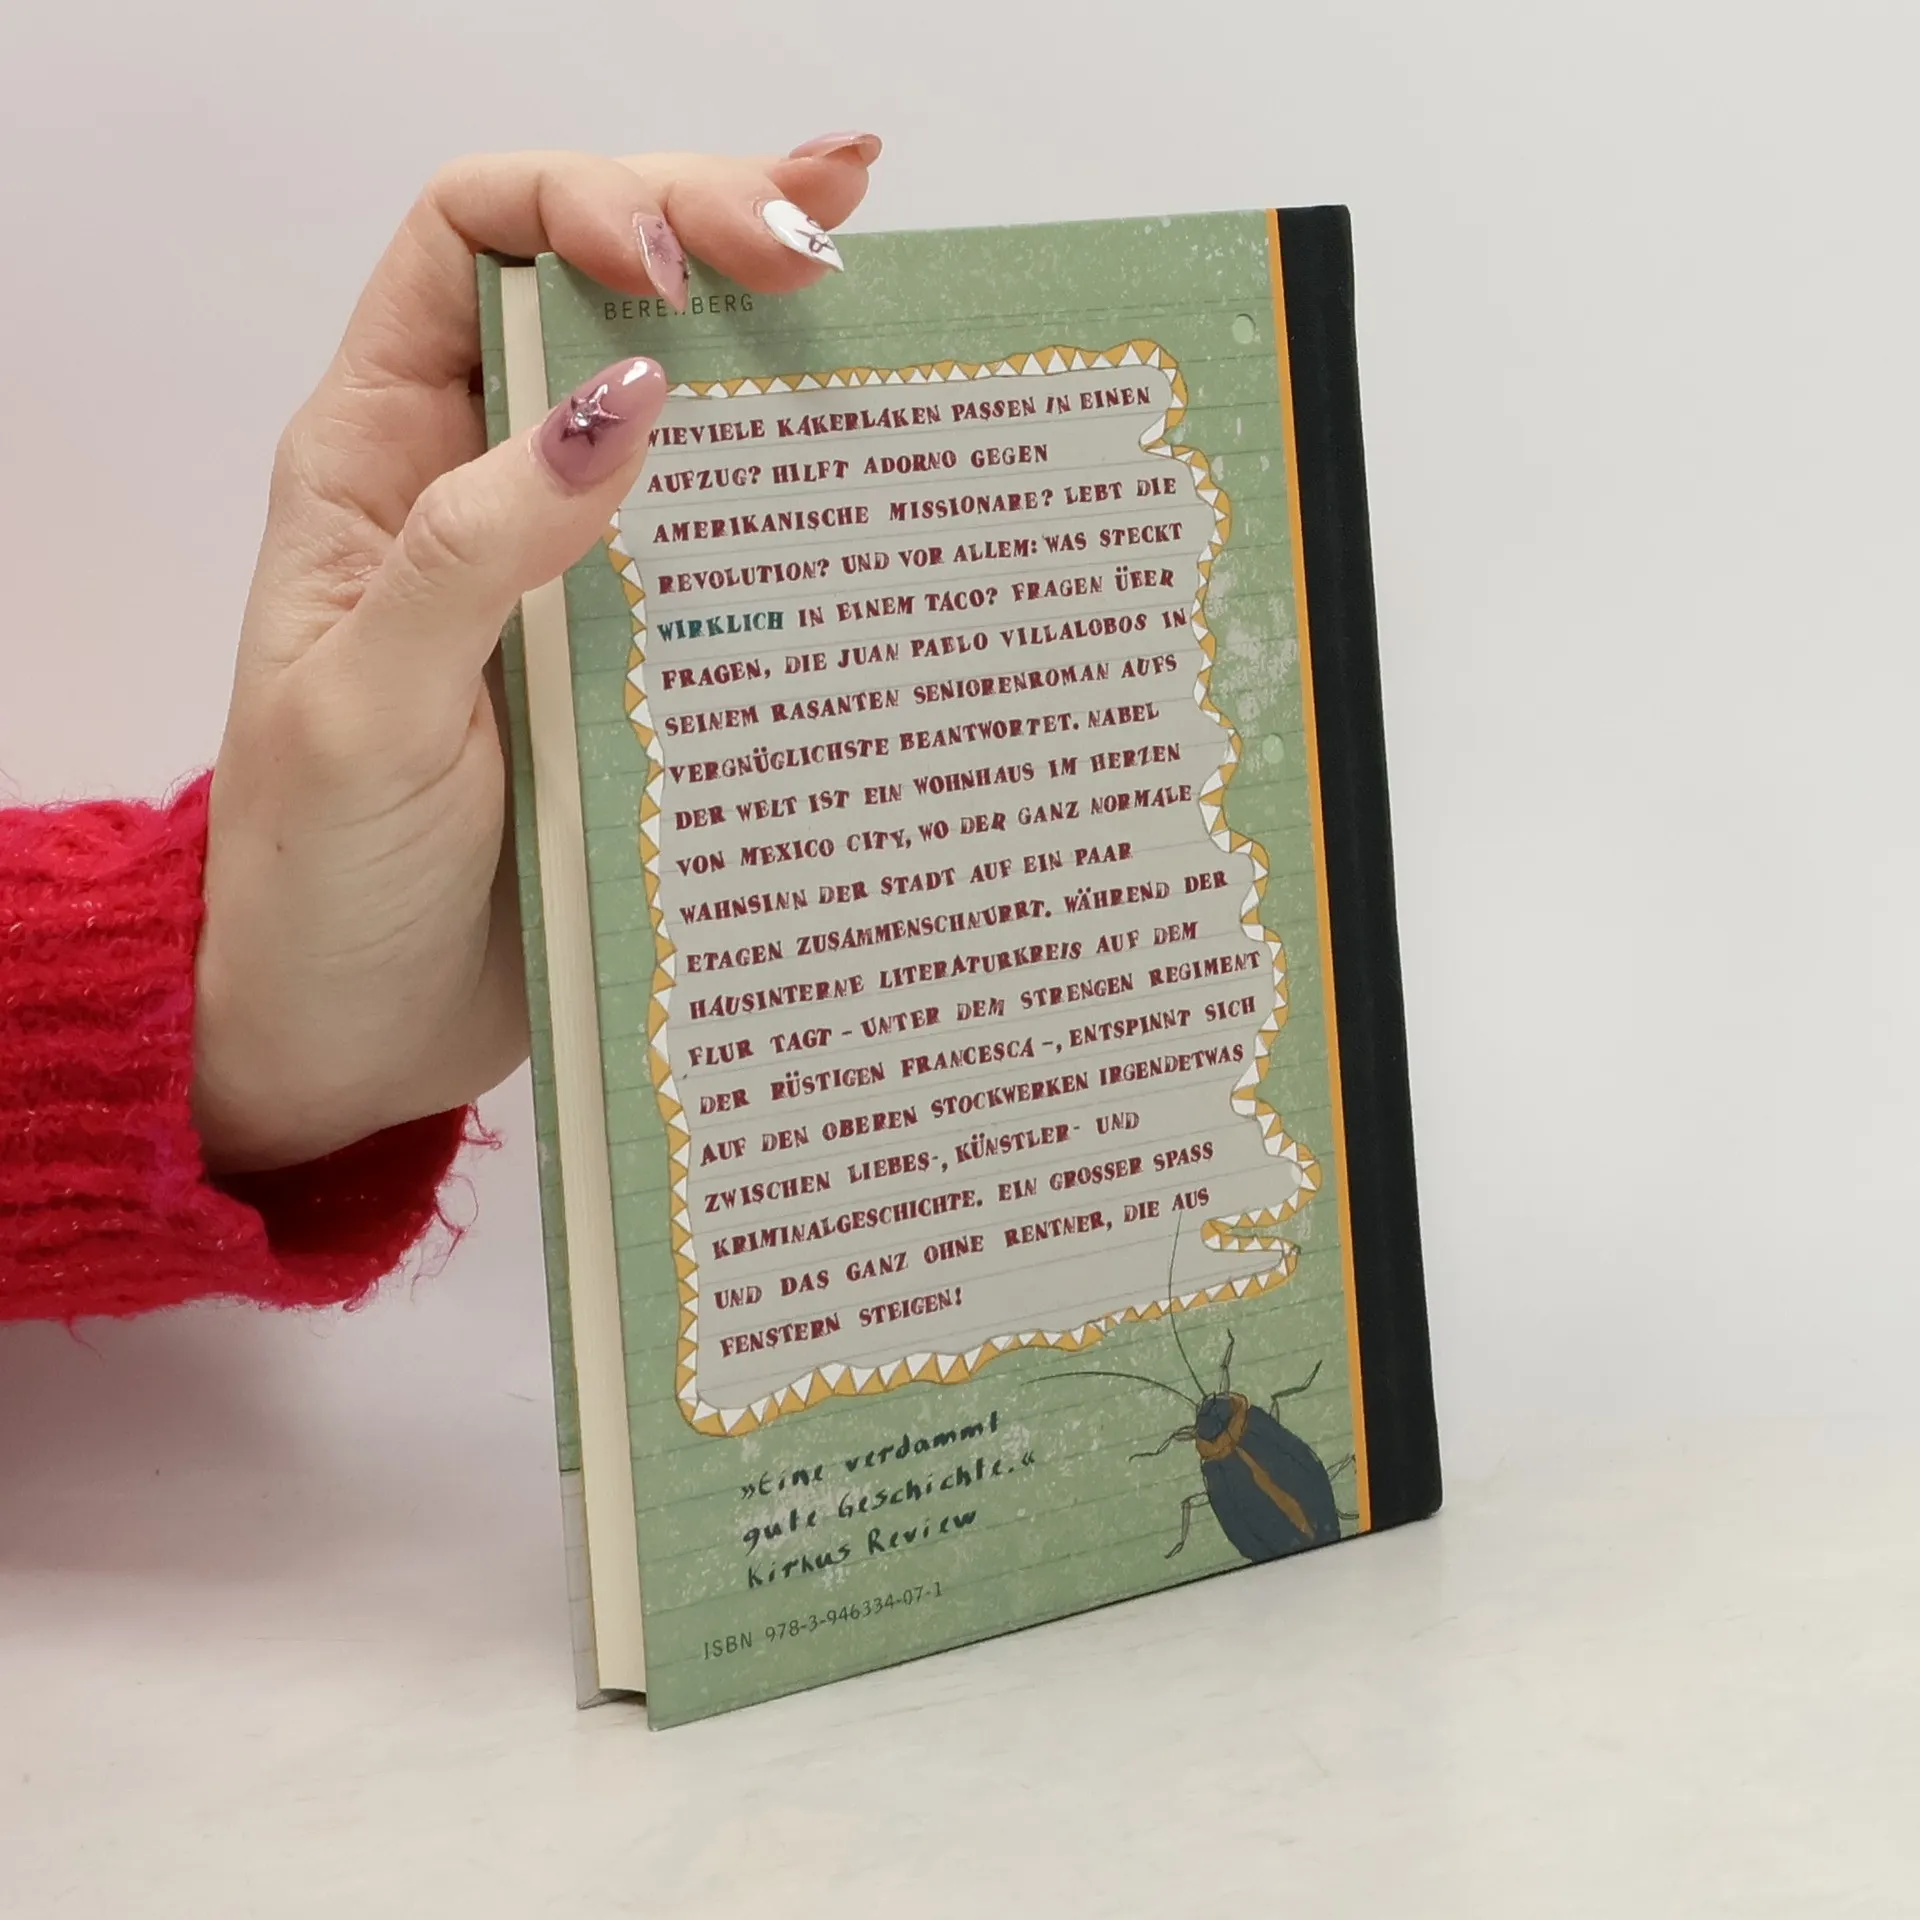 BERENBERG
WIEVIELE KAKERLAKEN PASSEN IN EINEN
AUFZUG? HILFT ADORNO GEGEN
AMERIKANISCHE MISSIONARE? LEBT DIE
REVOLUTION? UND VOR ALLEM: WAS STECKT
WIRKLICH IN EINEM TACO? FRAGEN ÜBER
FRAGEN, DIE JUAN PABLO VILLALOBOS IN
SEINEM RASANTEN SENIORENROMAN AUFS
VERGNÜGLICHSTE BEANTWORTET. NABEL
DER WELT IST EIN WOHNHAUS IM HERZEN
VON MEXICO CITY, WO DER GANZ NORMALE
WAHNSINN DER STADT AUF EIN PAAR
ETAGEN ZUSAMMENSCHNURRT. WÄHREND DER
HAUSINTERNE LITERATURKREIS AUF DEM
FLUR TAGT – UNTER DEM STRENGEN REGIMENT
DER RÜSTIGEN FRANCESCA –, ENTSPINNT SICH
AUF DEN OBEREN STOCKWERKEN IRGENDETWAS
ZWISCHEN LIEBES-, KÜNSTLER- UND
KRIMINALGESCHICHTE. EIN GROSSER SPASS
UND DAS GANZ OHNE RENTNER, DIE AUS
FENSTERN STEIGEN!
»Eine verdammt
gute Geschichte.«
Kirkus Review
ISBN 978-3-946334-07-1